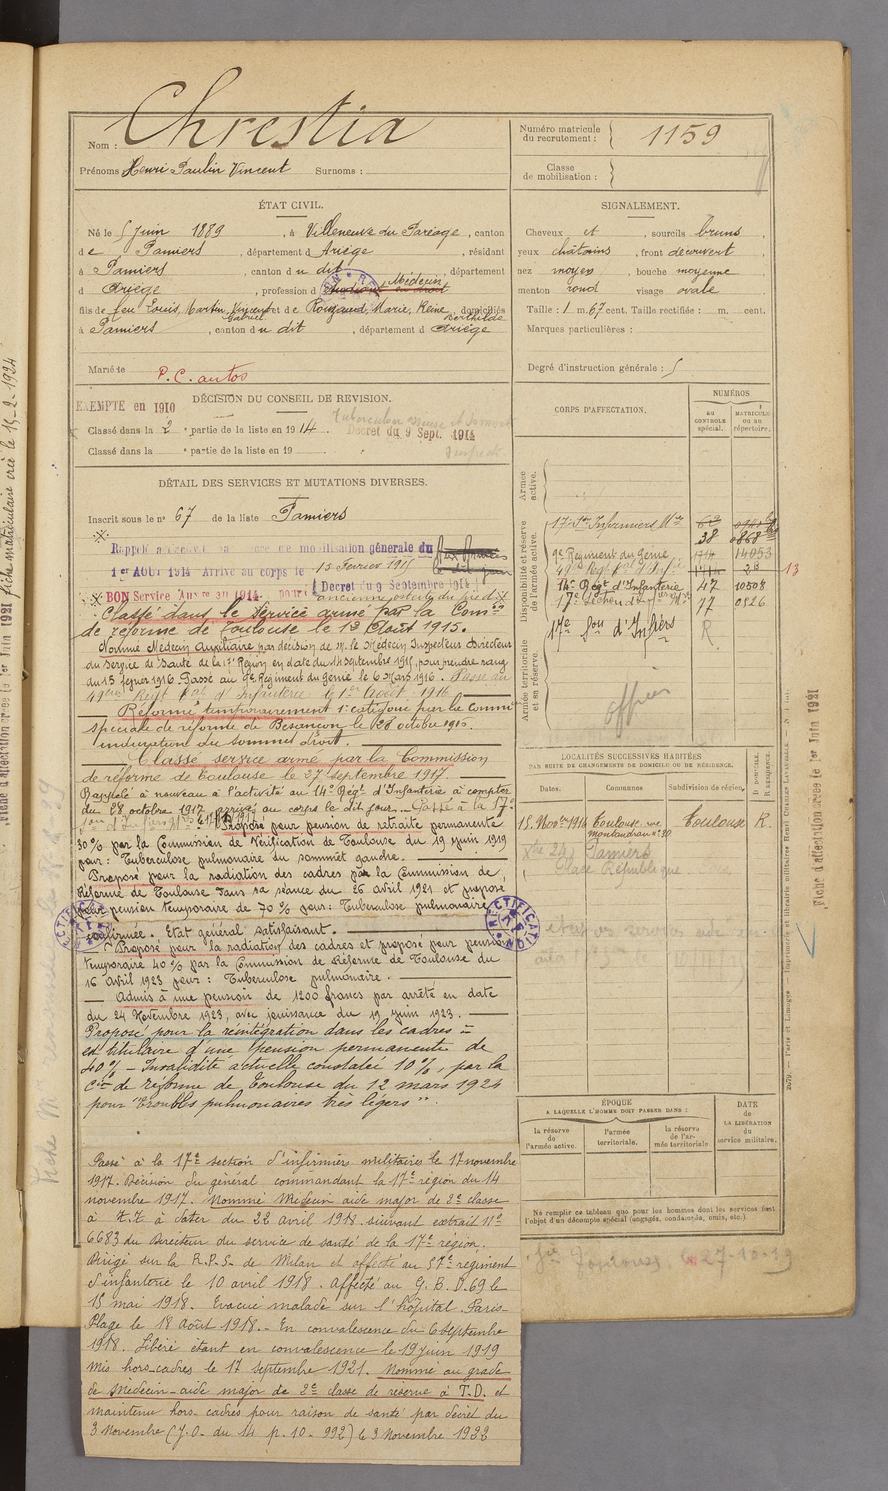 Nom : Chrestia
Prénoms Henri Paulin Vincent Surnoms :
Numéro matricule du recrutement : 1159
Classe de mobilisation :
ÉTAT CIVIL.
Né le 5 juin 1889, à Villeneuve du Paréage, canton
de Pamiers, département d Ariège, résidant
à Pamiers, canton du dit, département
d Ariège, profession d Médecin
fils de feu Louis, Martin, Vincent Gabriel et de Rougaud, Marie, Reine Berthilde domiciliés
à Pamiers, canton du dit, département d Ariège
Marié le
P. C. autos
SIGNALEMENT.
Cheveux et, sourcils bruns,
yeux châtains, front découvert,
nez moyen, bouche moyenne
menton rond visage ovale
Taille : 1 m. 67 cent. Taille rectifiée : m. cent.
Marques particulières :
Degré d'instruction générale : 5
DÉCISION DU CONSEIL DE REVISION.
EXEMPTE en 1910
Classé dans la 2e partie de la liste en 1914
Décret du 9 Sept. 1914
Classé dans la e partie de la liste en 19
DÉTAIL DES SERVICES ET MUTATIONS DIVERSES.
Inscrit sous le no 67 de la liste Pamiers
Rappelé à mobilisation générale du
1er AOUT 1914 Arrivé au corps le 15 Février 1915
BON Service Auxre en 1914 Décret du 9 Septembre 1914
Classé dans le service armé par la Comon
de réforme de Toulouse le 13 Août 1915.
Nommé Médecin Auxiliaire par décision de M. le Médecin Inspecteur Directeur
du Service de Santé de la 17e Région en date du 14 septembre 1915, pour prendre rang
du 15 février 1916. Passé au 9e Régiment du Génie le 6 Mars 1916. Passé au
49ème Regt d'Infanterie le 1er Août 1916
Réformé temporairement 1e catégorie par la Common
spéciale de réforme de Besançon le 28 octobre 1916.
induration du sommet droit.
Classé service armé par la Commission
de réforme de Toulouse le 27 septembre 1917.
Rappelé à nouveau à l'activité au 14e Régt d'Infanterie à compter
du 28 octobre 1917, arrivé au corps le dit jour. Passé à la 17e
Proposé pour pension de retraite permanente
30 % par la Commission de Vérification de Toulouse du 19 juin 1919
pour : Tuberculose pulmonaire du sommet gauche.
Proposé pour la radiation des cadres par la Commission de
Réforme de Toulouse dans sa séance du 26 avril 1921 et proposé
pour pension temporaire de 70 % pour : Tuberculose pulmonaire
confirmée. Etat général satisfaisant.
Proposé pour la radiation des cadres et proposé pour pension
temporaire 40 % par la Commission de Réforme de Toulouse du
16 avril 1923 pour : Tuberculose pulmonaire.
Admis à une pension de 1200 francs par arrêté en date
du 24 Novembre 1923, avec jouissance du 19 juin 1923.
Proposé pour la réintégration dans les cadres =
est titulaire d'une pension permanente de
40 % - Invalidité actuelle constatée 10 %, par la
Con de réforme de Toulouse du 12 mars 1924
pour "troubles pulmonaires très légers".
Passé à la 17e section d'infirmiers militaires le 17 novembre
1917. Décision du général commandant la 17e région du 14
novembre 1917. Nommé Médecin aide major de 2e classe
à T.T à dater du 22 avril 1918 suivant extrait no
6683 du Directeur du service de santé de la 17e région.
Dirigé sur la R.P.S. de Melun et affecté au 57e régiment
d'infanterie le 10 avril 1918. Affecté au G.B.D. 69 le
15 mai 1918. Evacué malade sur l'hôpital Paris-
Plage le 18 août 1918. En convalescence du 6 septembre
1918. Libéré étant en convalescence le 19 juin 1919
Mis hors-cadres le 17 septembre 1921. Nommé au grade
de Médecin-aide major de 2e classe de réserve à T.D. et
maintenu hors cadres pour raison de santé par décret du
3 Novembre (J.O. du 14 p. 10.992) le 3 Novembre 1922
CORPS D'AFFECTATION.
NUMÉROS
AU CONTRÔLE spécial.
MATRICULE ou au répertoire.
Armée active.
Disponibilité et réserve de l'armée active.
17e Son Infirmiers Mres
38 0868
9e Régiment du Génie 14053
13
14e Régt d'Infanterie 47 10508
17e 17 0526
Armée territoriale et sa réserve.
17e Son d'Infiers R
officier
LOCALITÉS SUCCESSIVES HABITÉES
PAR SUITE DE CHANGEMENTS DE DOMICILE OU DE RÉSIDENCE.
Dates. Communes. Subdivision de région. D. DOMICILE. R. RÉSIDENCE.
15 Novbre 1916 Toulouse, rue Montaudran no 30 Toulouse R.
Pamiers
Place République
RECTIFICATION
ÉPOQUE
A LAQUELLE L'HOMME DOIT PASSER DANS :
la réserve de l'armée active.
l'armée territoriale.
la réserve de l'armée territoriale
DATE de LA LIBÉRATION du service militaire.
Ne remplir ce tableau que pour les hommes dont les services font
l'objet d'un décompte spécial (engagés, condamnés, omis, etc.).
27-10-39
Fiche d'affectation créée le 1er Juin 1921
fiche matriculaire créée le 15-2-1924